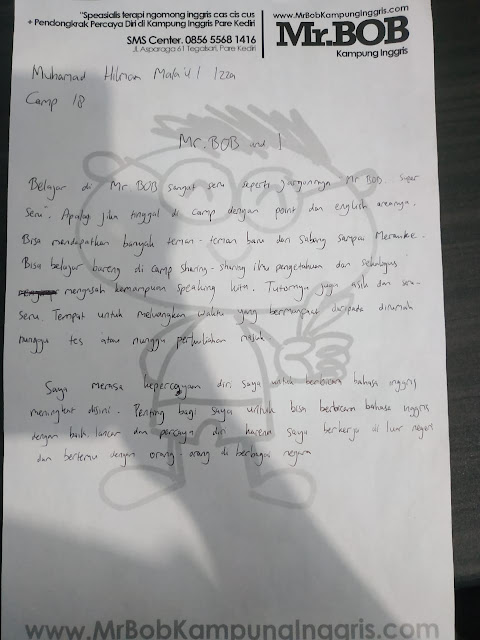 "Speasialis terapi ngomong inggris cas cis cus
+ Pendongkrak Percaya Diri di Kampung Inggris Pare Kediri
SMS Center. 0856 5568 1416
Jl. Asparaga 61 Tegalsari, Pare Kediri
www.MrBobKampungInggris.com
Mr.BOB
Kampung Inggris
Muhamad Hilman Izza
Camp 18
Mr. BOB and I
Belajar di Mr BOB sangat seru seperti jargonnya Mr BOB. "Super
Seru". Apalagi jika tinggal di camp dengan point dan english areanya.
Bisa mendapatkan banyak teman-teman baru dari Sabang sampai Merauke.
Bisa belajar bareng di camp sharing-sharing ilmu pengetahuan dan sekaligus
mengasah kemampuan speaking kita. Tutornya juga asik dan seru-
seru. Tempat untuk meluangkan waktu yang bermanfaat daripada dirumah
nunggu tes atau nunggu perkuliahan masuk.
Saya merasa kepercayaan diri saya untuk berbicara bahasa inggris
meningkat disini. Penting bagi saya untuk bisa berbicara bahasa inggris
dengan baik, lancar dan percaya diri karena saya berkerja di luar negeri
dan bertemu dengan orang-orang di berbagai negara
www.MrBobKampungInggris.com